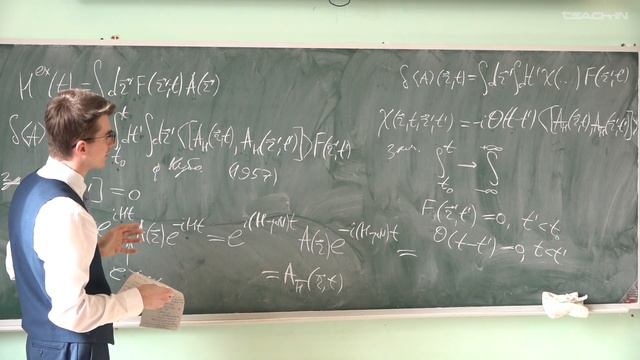 TEACH-IN
H^{ex}(t) = ∫ d\vec{r}' F(\vec{r}',t) A(\vec{r}')
δ⟨A⟩ ∫_{t_0}^{t} dt' ∫ d\vec{r}' ⟨[A_H(\vec{r},t), A_H(\vec{r}',t')]⟩ F(\vec{r}',t')
ф Кубо (1957)
] = 0
e^{iHt} A(\vec{r}) e^{-iHt} = e^{i(H-μN)t} A(\vec{r}) e^{-i(H-μN)t} =
= A_{\bar{H}}(\vec{r},t)
δ⟨A⟩(\vec{r},t) = ∫ d\vec{r}' ∫ dt' χ(...) F(\vec{r}',t')
χ(\vec{r},t,\vec{r}',t') = -iθ(t-t') ⟨[A_H(\vec{r},t) A_H(\vec{r}',t')]⟩
зам. ∫_{t_0}^{t} → ∫_{-∞}^{+∞}
F(\vec{r}',t') = 0, t' < t_0
θ(t-t') = 0, t < t'